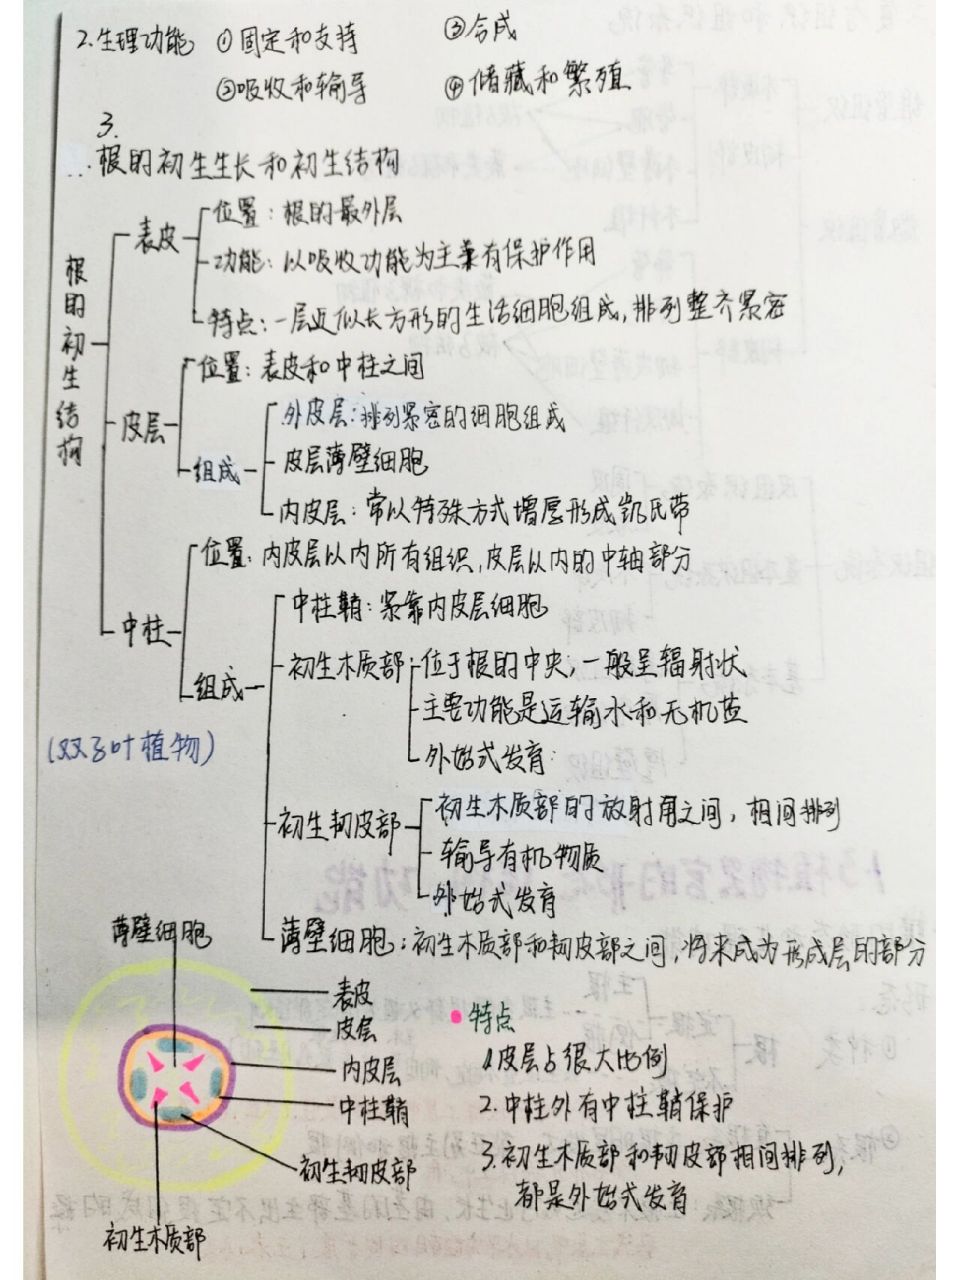 2.生理功能 ①固定和支持 ③合成
②吸收和输导 ④储藏和繁殖
3.
根的初生生长和初生结构
根的初生结构
表皮
位置：根的最外层
功能：以吸收功能为主兼有保护作用
特点：一层近似长方形的生活细胞组成，排列整齐紧密
皮层
位置：表皮和中柱之间
组成
外皮层：排列紧密的细胞组成
皮层薄壁细胞
内皮层：常以特殊方式增厚形成凯氏带
中柱
位置：内皮层以内所有组织，皮层以内的中轴部分
组成
中柱鞘：紧靠内皮层细胞
初生木质部
位于根的中央，一般呈辐射状
主要功能是运输水和无机盐
外始式发育
(双子叶植物)
初生韧皮部
初生木质部的放射角之间，相间排列
输导有机物质
外始式发育
薄壁细胞：初生木质部和韧皮部之间，将来成为形成层的部分
薄壁细胞
表皮
皮层
内皮层
中柱鞘
初生韧皮部
初生木质部
特点
1.皮层占很大比例
2.中柱外有中柱鞘保护
3.初生木质部和韧皮部相间排列，
都是外始式发育